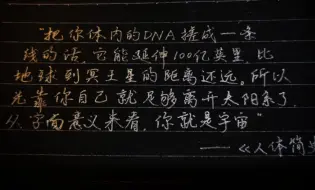 “把你体内的DNA搓成一条
线的话，它能延伸100亿英里，比
地球到冥王星的距离还远。所以
光靠你自己就足够离开太阳系了
从字面意义来看，你就是宇宙”
——《人体简史